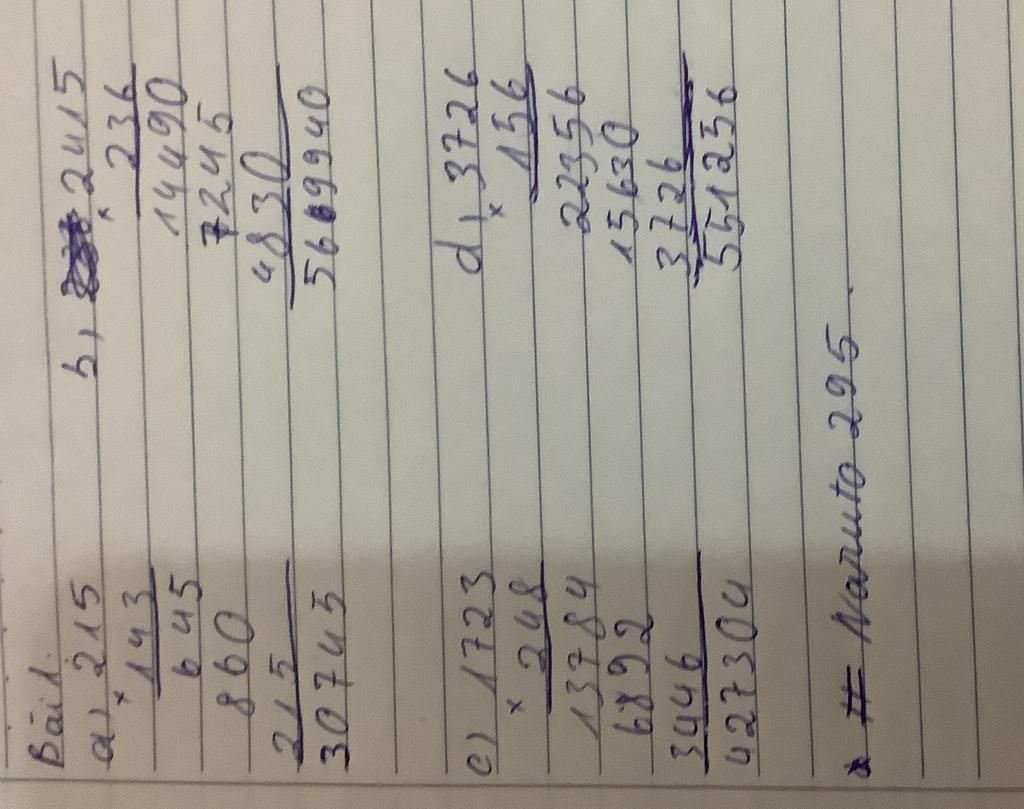 Bài 1.
a) 215
× 143
645
860
215
30745
b) 2415
× 236
14490
7245
4830
569940
c) 1723
× 248
13784
6892
3446
427304
d) 3726
× 156
22356
15630
3726
551256
# Naruto 295.